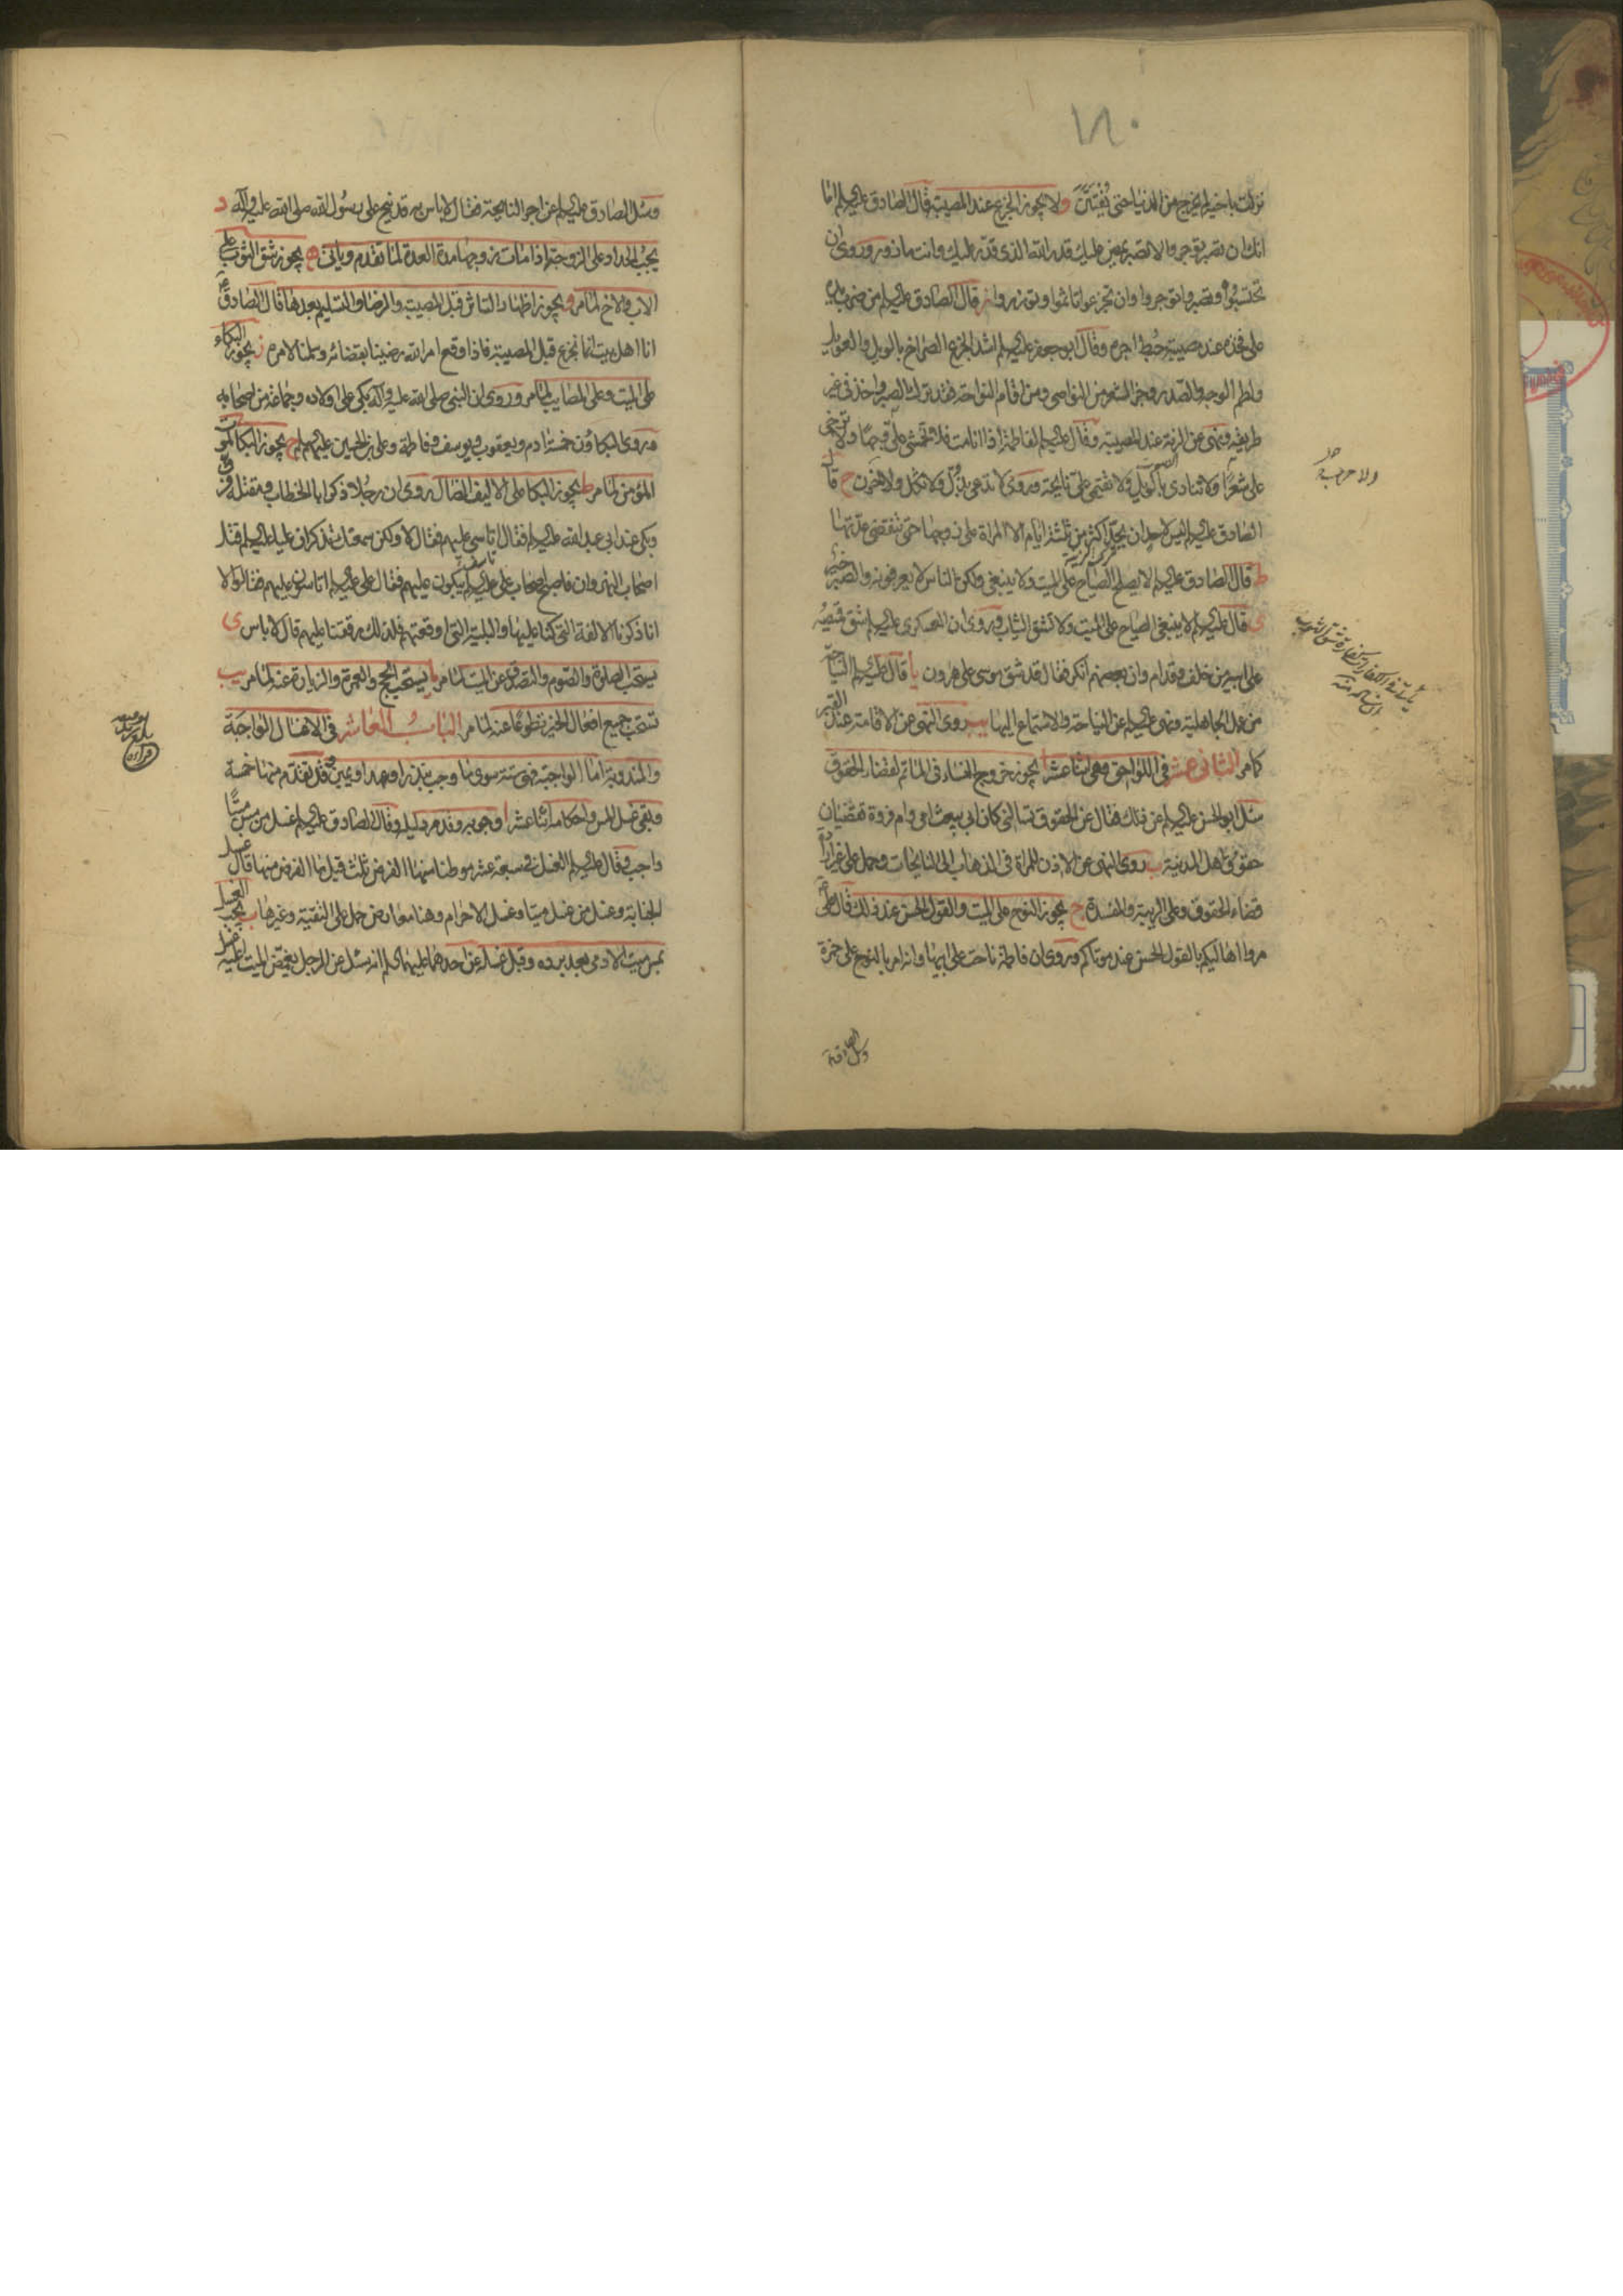 نزلت باخيك لم يخرج من الدنيا حتى و لا يجوز الجزع عند المصيبة قال الصادق عليه السلم اما
انك ان تصبر توجر والا تصبر يمضى عليك قدر الله الذى قدر عليك وانت مازور وروى ان
تحتسبوا وتصبروا توجروا وان تجزعوا تاثموا وتوزروا ز قال الصادق عليه السلم من ضرب يده
على فخذه عند مصيبة حبط اجره وقال ابو جعفر عليه السلم اشد الجزع الصراخ بالويل والعويل
ولطم الوجه والصدر وجز الشعر من النواصى ومن اقام النواحة فقد ترك الصبر واخذ فى غير
طريقه ونهى عن الرنة عند المصيبة وقال عليه السلم لفاطمة اذا انا مت فلا تخمشى على وجها ولا ترخى
على شعرا ولا تنادى بالويل ولا تقيمى على نايحة وروى لا تدعى بذل ولا ثكل ولا حزن ح قال
الصادق عليه السلم ليس لاحد ان يحد اكثر من ثلثة ايام الا المراة على زوجها حتى تنقضى عدتها
ط قال الصادق عليه السلم لا يصلح الصياح على الميت ولا ينبغى ولكن الناس لا يعرفونه والصبر خير
ى قال عليه السلم لا ينبغى الصياح على الميت ولا تشق الثياب وروى ان العسكرى عليه السلم شق قميصه
على ابيه من خلف وقدام وان بعضهم انكر فقال قد شق موسى على هرون يا قال عليه السلم النياحة
من عمل الجاهلية ونهى عليه السلم عن النياحة والاستماع اليها يب روى النهى عن الاقامة عند القبر
كما مر الثانى عشر فى اللواحق وهى اثنا عشر ا يجوز خروج النساء فى الماتم لقضاء الحقوق
سئل ابو الحسن عليه السلم عن ذلك فقال عن الحقوق تسالنى كان ابى يبعث امى وام فروة تقضيان
حقوق اهل المدينة ب روى النهى عن الاذن للمراة فى الذهاب الى النايحات وحمل على غير ارادة
قضاء الحقوق وعلى الريبة والمفسدة ج يجوز النوح على الميت والقول الحسن عند ذلك قال على
مروا اهاليكم بالقول الحسن عند موتاكم وروى ان فاطمة ناحت على ابيها وانه امر بالنوح على حمزة
وسئل الصادق عليه السلم عن اجر النايحة فقال لا باس به قد نيح على رسول الله صلى الله عليه وآله د
يجب الحداد على الزوجة اذا مات زوجها مدة العدة لما تقدم وياتى ه يجوز شق الثوب على
الاب والاخ لما مر و يجوز اظهار التاثر قبل المصيبة والرضا والتسليم بعدها قال الصادق
انا اهل بيت انما نجزع قبل المصيبة فاذا وقع امر الله رضينا بقضائه وسلمنا لامره ز يجوز البكاء
على الميت وعلى المصايب لما مر وروى ان النبى صلى الله عليه وآله بكى على اولاده وجماعة من اصحابه
وروى البكاؤن خمسة ادم ويعقوب ويوسف وفاطمة وعلى بن الحسين عليهم السلم ح يجوز البكا لموت
المؤمن لما مر ط يجوز البكا على الاليف الضال روى ان رجلا ذكر ابا الخطاب ومقتله فرق
وبكى عند ابى عبد الله عليه السلم فقال اتاسى عليهم فقال لا ولكن سمعتك تذكر ان عليا عليه السلم قتل
اصحاب النهروان فاصبح اصحاب على عليه السلم يبكون عليهم فقال على عليه السلم اتاسون عليهم فقالوا لا
انا ذكرنا الالفة التى كنا عليها والبلية التى اوقعتهم فلذلك رققنا عليهم قال لا باس ى
يستحب الصلوة والصوم والتصدق عن الميت لما مر يا يستحب الحج والعمرة والزيارة عنه لما مر يب
تستحب جميع افعال الخير تطوعا عنه لما مر الباب العاشر فى الاغسال الواجبة
والمندوبة اما الواجبة فهى ستة سوى ما وجب بنذر او عهد او يمين وقد تقدم منها خمسة
وبقى غسل المس واحكامه اثنا عشر ا وجوبه وقد مر دليله وقال الصادق عليه السلم غسل من مس ميتا
واجب وقال عليه السلم الغسل فى سبعة عشر موطنا منها الفرض ثلث قيل ما الفرض منها قال غسل
الجنابة وغسل من غسل ميتا وغسل الاحرام وهنا معارض حمل على التقية وغيرها ب يجب الغسل
بمس ميت الادمى بعد برده وقبل غسله عن احدهما عليهما السلم انه سئل عن الرجل يغمض الميت اعليه غسل